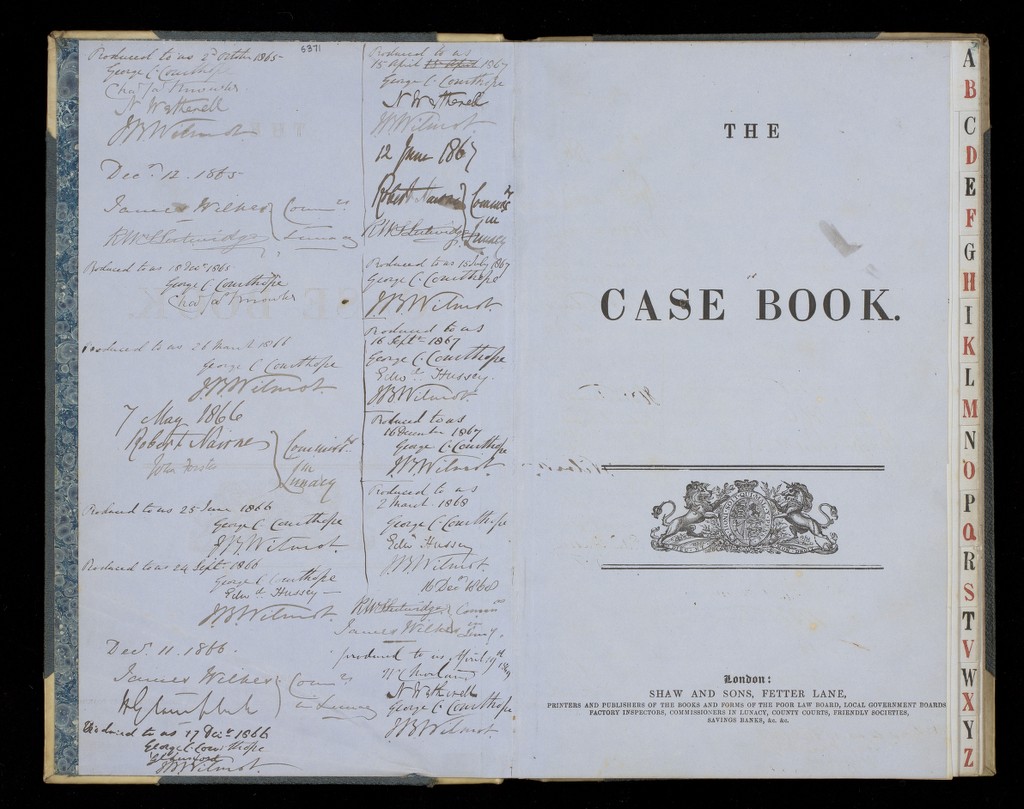 5371
Produced to us 2d October 1865
George C. Courthope
N. Wetherell
JBWilmot
Decr. 12. 1865
James Wilkes Commrs
RWSLutwidge in Lunacy
Produced to us 18 Decr 1865
George C. Courthope
Produced to us 26 March 1866
George C Courthope
JBWilmot
7 May 1866
Robert Nairne Commissrs
John Forster in
Lunacy
Produced to us 25 June 1866
George C Courthope
JBWilmot
Produced to us 24 Septr 1866
George C Courthope
Edwd. Hussey
JBWilmot
Decr. 11. 1866.
James Wilkes Commrs
in Lunacy
Produced to us 17 Decr 1866
George C. Courthope
JBWilmot
Produced to us
15 April 1867
George C. Courthope
N Wetherell
JBWilmot
12 June 1867
Robert Nairne Commissrs
RWSLutwidge in
Lunacy
Produced to us 15 July 1867
George C. Courthope
JBWilmot
Produced to us
16 Septr 1867
George C. Courthope
Edwd. Hussey
JBWilmot
Produced to us
16 December 1867
George C. Courthope
JBWilmot
Produced to us
2 March 1868
George C. Courthope
Edwd Hussey
JBWilmot
16 Decr 1868
RWSLutwidge Commrs
James Wilkes in Lunacy
produced to us April 19th 1869
N Wetherell
George C. Courthope
JBWilmot
THE
CASE BOOK.
London:
SHAW AND SONS, FETTER LANE,
PRINTERS AND PUBLISHERS OF THE BOOKS AND FORMS OF THE POOR LAW BOARD, LOCAL GOVERNMENT BOARDS
FACTORY INSPECTORS, COMMISSIONERS IN LUNACY, COUNTY COURTS, FRIENDLY SOCIETIES,
SAVINGS BANKS, &c. &c.
A
B
C
D
E
F
G
H
I
K
L
M
N
O
P
Q
R
S
T
V
W
X
Y
Z